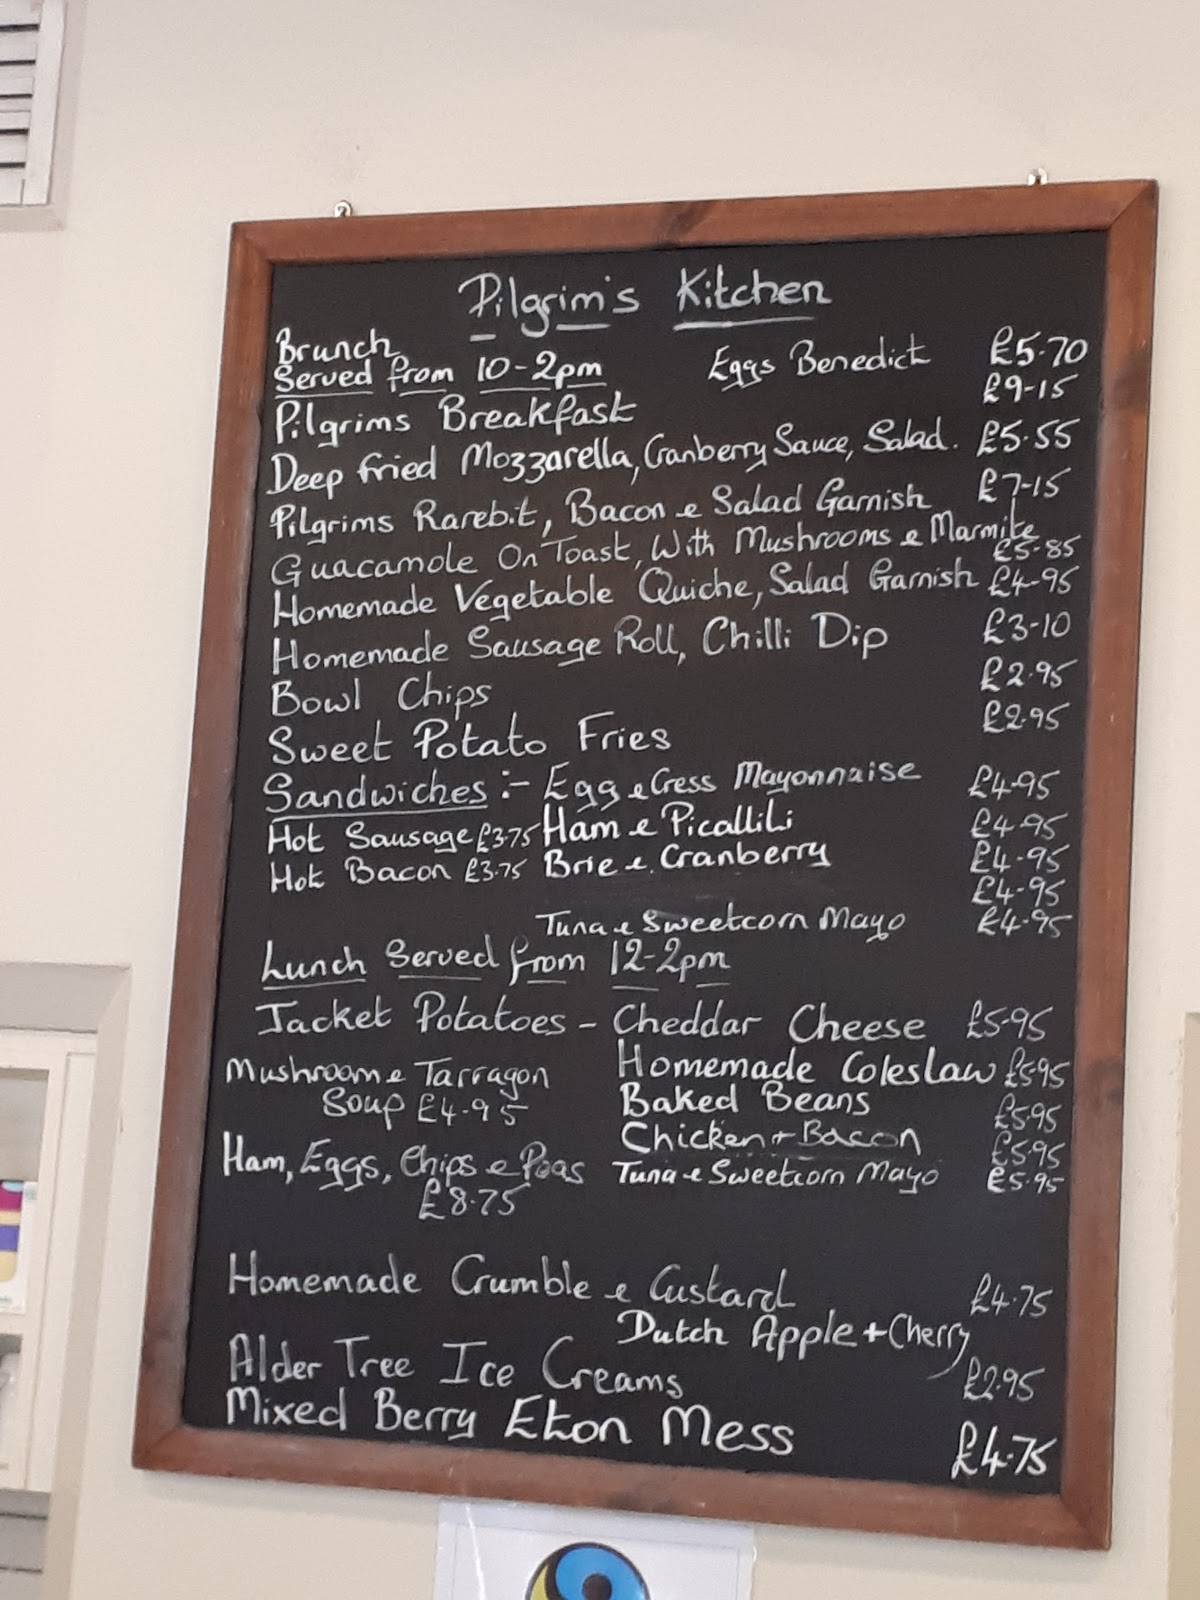 Pilgrim's Kitchen
Brunch
Served from 10-2pm Eggs Benedict £5.70
Pilgrims Breakfast £9-15
Deep fried Mozzarella, Cranberry Sauce, Salad. £5.55
Pilgrims Rarebit, Bacon e Salad Garnish £7-15
Guacamole On Toast, With Mushrooms e Marmite £5.85
Homemade Vegetable Quiche, Salad Garnish £4-95
Homemade Sausage Roll, Chilli Dip £3-10
Bowl Chips £2.95
Sweet Potato Fries £2.95
Sandwiches :- Egg e Cress Mayonnaise £4-95
Hot Sausage £3.75 Ham e Picallili £4.95
Hot Bacon £3.75 Brie e Cranberry £4-95
£4-95
Tuna e Sweetcorn Mayo £4-95
Lunch Served from 12-2pm
Jacket Potatoes - Cheddar Cheese £5.95
Mushroom e Tarragon Homemade Coleslaw £5.95
Soup £4.95 Baked Beans £5.95
Chicken + Bacon £5.95
Ham, Eggs, Chips e Peas Tuna e Sweetcorn Mayo £5.95
£8.75
Homemade Crumble e Custard £4.75
Dutch Apple + Cherry
Alder Tree Ice Creams £2.95
Mixed Berry Eton Mess £4.75